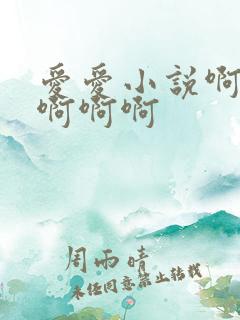 愛愛小說啊
啊啊啊
周雨晴
未经同意禁止转载